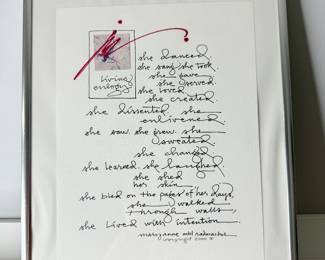 living
eulogy
she danced.
she sang. she took.
she gave.
she served.
she loved.
she created.
she dissented. she
enlivened.
she saw. she grew. she
sweated.
she changed.
she learned. she laughed.
she shed
her skin.
she bled on the pages of her days.
she walked
through walls.
she lived with intention.
mary anne radmacher
copyright 2000 ©